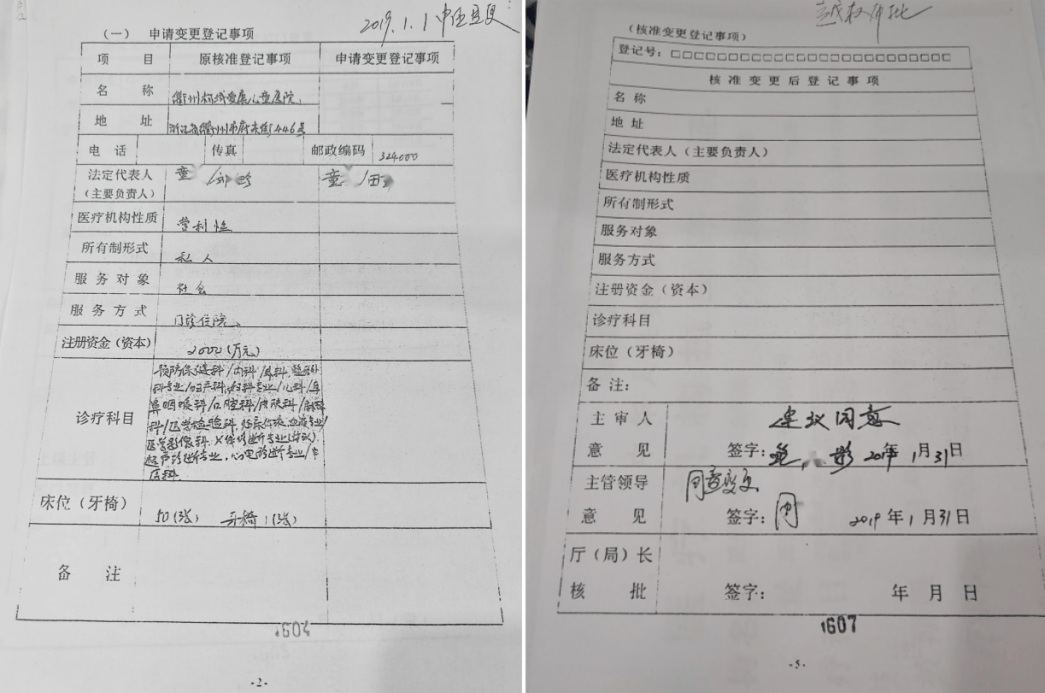 2019.1.1
(一) 申请变更登记事项
项 目 原核准登记事项 申请变更登记事项
名 称 衢州柯城爱康儿童医院
地 址 浙江省衢州市府东街446号
电 话 传真 邮政编码 324000
法定代表人 童 童
(主要负责人)
医疗机构性质 营利性
所有制形式 私人
服 务 对 象 社会
服 务 方 式 门诊住院、
注册资金(资本) 2000(万元)
诊疗科目 预防保健科/内科/外科
专业/妇产科,妇科专业/儿科/耳
鼻咽喉科/口腔科/皮肤科/麻醉
科/医学检验科
医学影像科,X线诊断专业
超声诊断专业,心电诊断专业/中
医科
床位(牙椅) 50(张) 牙椅1(张)
备 注
1604
-2-
(核准变更登记事项)
登记号:□□□□□□□□□□□□□□□□□□□□□□
核 准 变 更 后 登 记 事 项
名 称
地 址
法定代表人(主要负责人)
医疗机构性质
所有制形式
服务对象
服务方式
注册资金(资本)
诊疗科目
床位(牙椅)
备 注:
主 审 人 建议同意
意 见 签字: 2019年1月31日
主管领导 同意变更
意 见 签字: 2019年1月31日
厅(局)长
核 批 签字: 年 月 日
1607
-5-